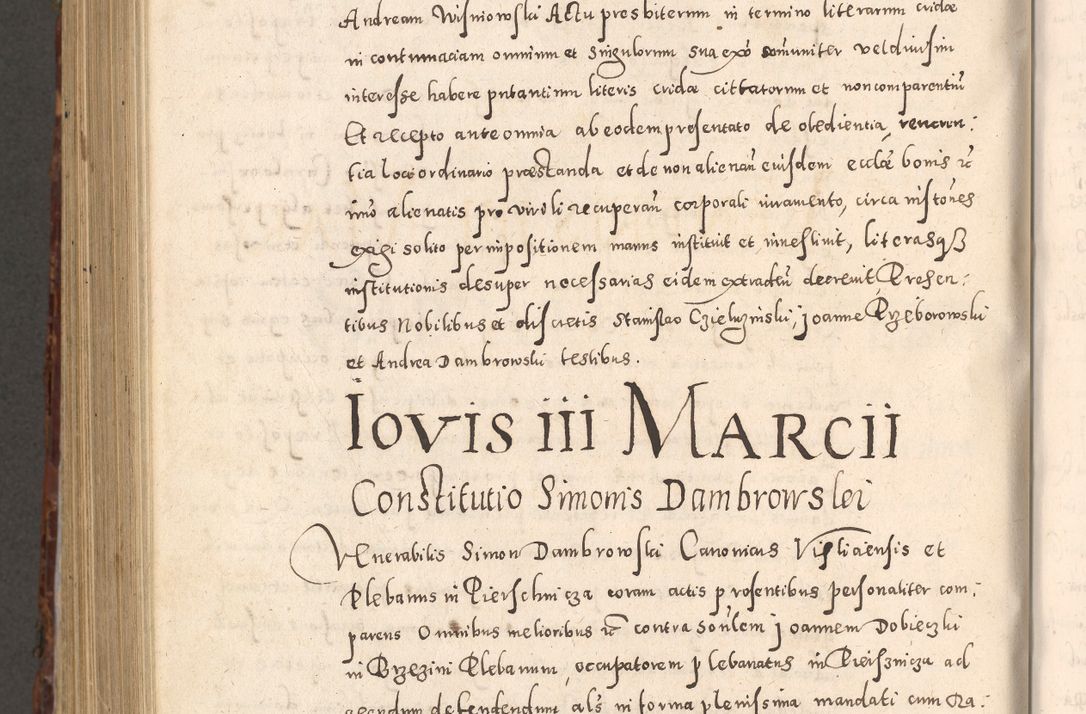 Andream Wisniowski Actu presbiterum in termino literarum cridæ
in contumaciam omnium et singulorum sua exñ comũniter vel diuisim
interesse habere putantium literis cridæ cittatorum et non comparentiũ
Et recepto ante omnia ab eodem presentato de obedientia, reueren:
tia loci ordinario præstanda et de non alienañ eiusdem ecclæ bonis &c
imo alienatis pro virili recuperañ corporali iuramento, circa inst̃ones
exigi solito per impositionem manus instituit et inuestiuit, literasqȝ
institutionis desuper necessarias eidem extradeñ decreuit Presen:
tibus Nobilibus et discretis Stanislao Czieluzinski, Joanne Przeborowski
et Andrea Dambrowski testibus.
Iovis iii Marcii
Constitutio Simonis Dambrowskei
Venerabilis Simon Dambrowski Canonicus Visliciensis et
Plebanus in Pierschnicza coram actis presentibus personaliter com:
parens Omnibus melioribus &c contra Hoñlem Joannem Dobieczki
in Brzezini Plebanum, occupatorem plebanatus in Pieisznicza ad
agendum defendendum als in forma plenissima mandati cum Ra: